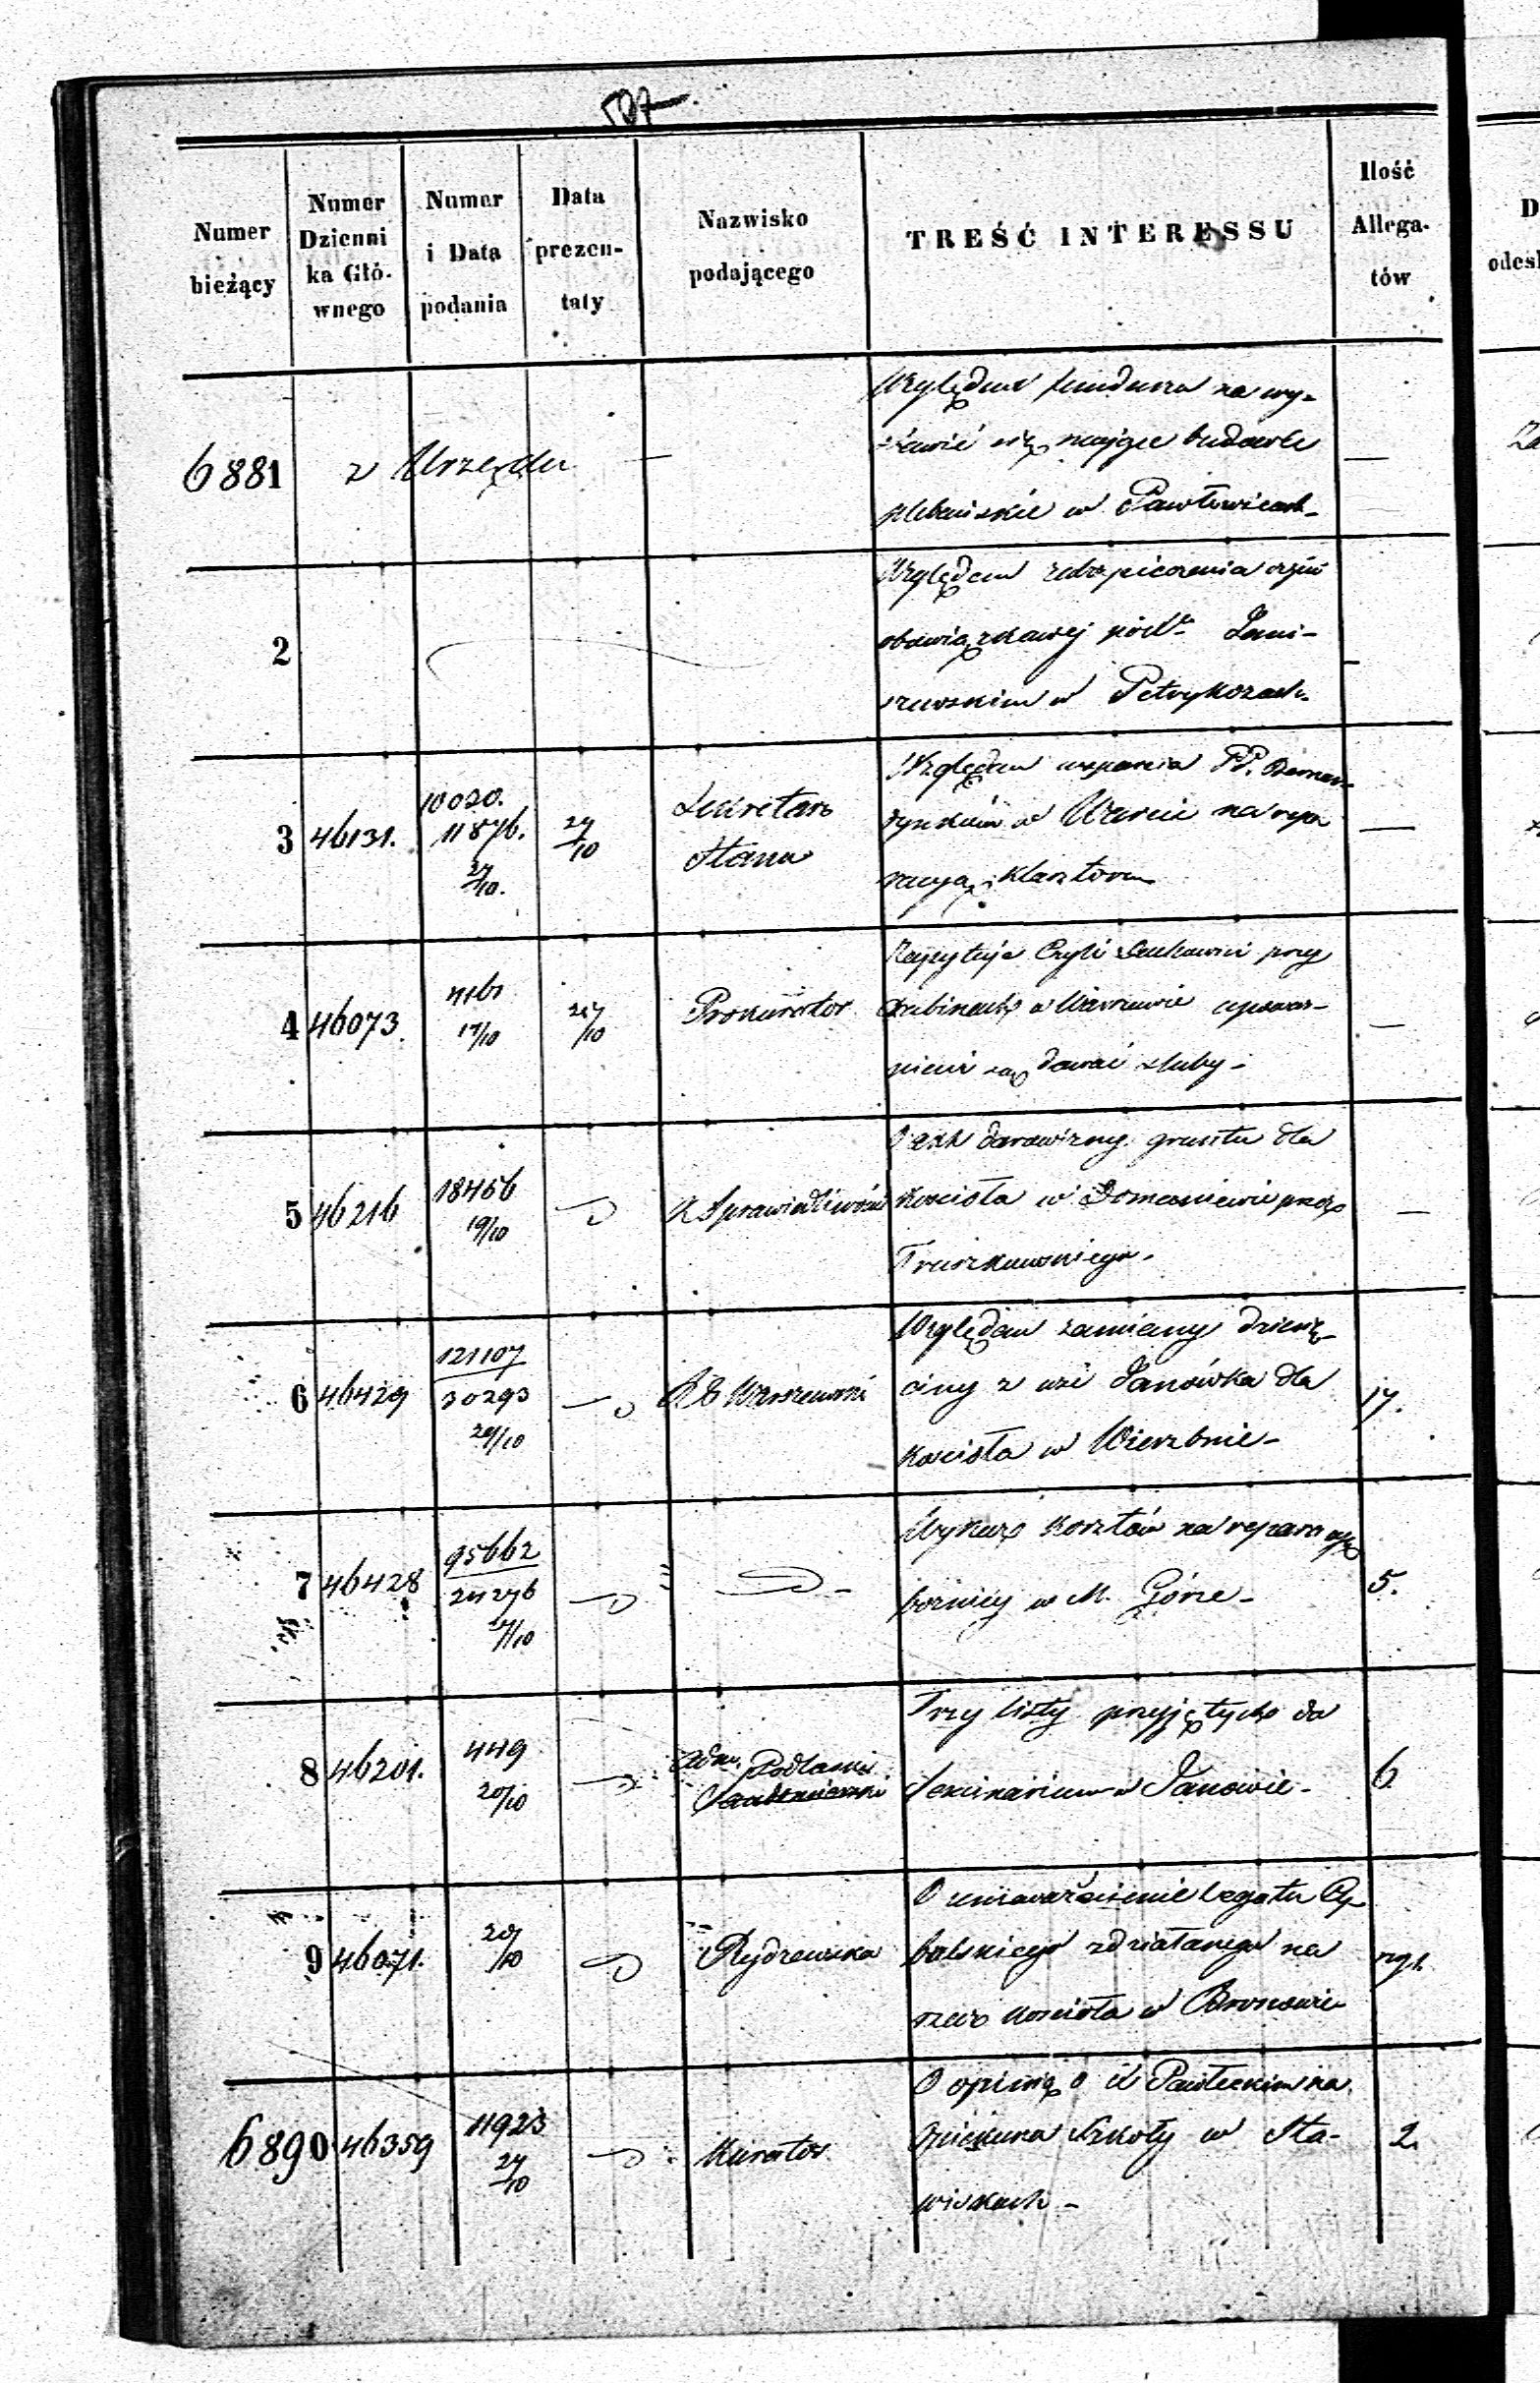 597
Numer bieżący
Numer Dzienni ka Głó- wnego
Numer i Data podania
Data prezen- taty
Nazwisko podającego
TREŚĆ INTERESSU
Ilość Allega- tów
6881
z Urzędu
Względem funduszu na wy-
stawić się mające budowle
plebańskie w Pawłowicach
2
Względem zabezpieczenia
obowiązkowej
w Petrykozach
3 46131.
10020.
11876.
27/10.
27/10
Sekretarz
Stanu
Względem wsparcia PP. Bernar-
dynków w Warcie na repa
racyą klasztoru
4 46073.
17/10
27/10
Prokurator
Zapytuje Czyli Duchowni przy
w Warszawie upoważ-
nieni są dawać śluby -
5 46216
18456
19/10
K Sprawiedliwości
O akt darowizny gruntu dla
Kościoła w Domaniewie przez
Truszkowskiego -
6 46429
121107
30293
20/10
RG Warszawski
Względem zamiany dziesię-
ciny z wsi Janówka dla
Kościoła w Wierzbnie -
17.
7 46428
95662
24276
17/10
Wykaz kosztów na reparacyę
bożnicy w M. Górze -
5.
8 46201.
449
20/10
Adm. Podlaski
Trzy listy przyjętych do
Seminarium w Janowie -
6
9 46071.
27/10
Rydzewska
O unieważnienie legatu Ry-
balskiego zdziałanego na
rzecz kościoła w
6890 46359
11923
27/10
Kurator
O opinią o na
Opiekuna Szkoły w Sta-
wiskach -
2.